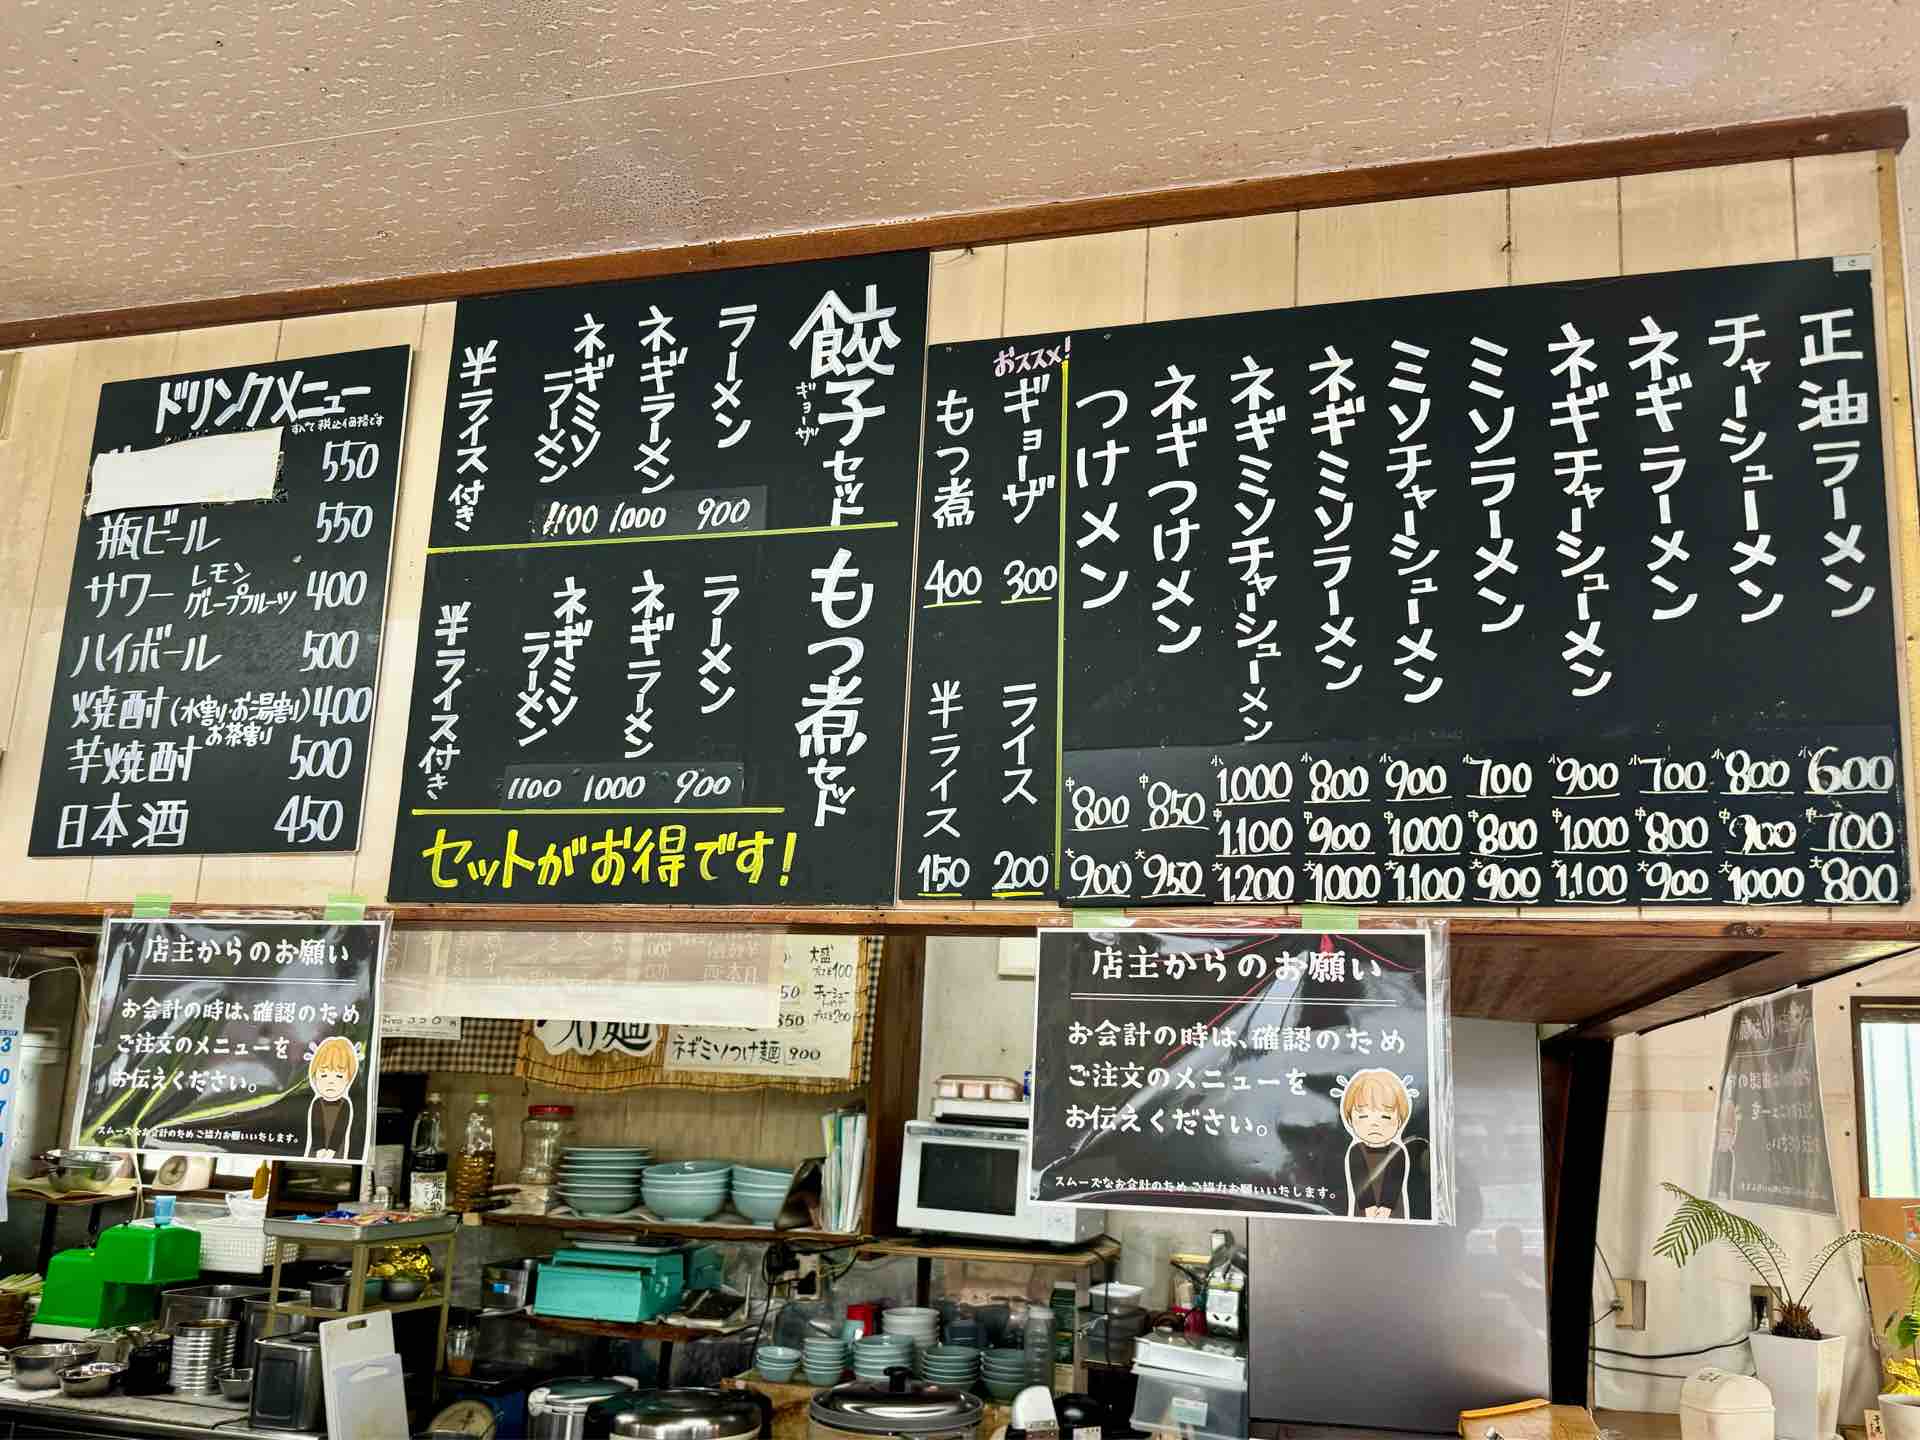 ドリンクメニュー
すべて税込価格です
550
瓶ビール 550
サワー レモン グレープフルーツ 400
ハイボール 500
焼酎(水割・お湯割) 400
お茶割
芋焼酎 500
日本酒 450
餃子セット
ギョーザ
ラーメン 900
ネギラーメン 1,000
ネギミソラーメン 1100
半ライス付き
もつ煮セット
ラーメン 900
ネギラーメン 1000
ネギミソラーメン 1100
半ライス付き
セットがお得です!
正油ラーメン 小600 中700 大800
チャーシューメン 小800 中900 大1,000
ネギラーメン 小700 中800 大900
ネギチャーシューメン 小900 中1,000 大1,100
ミソラーメン 小700 中800 大900
ミソチャーシューメン 小900 中1,000 大1,100
ネギミソラーメン 小800 中900 大1000
ネギミソチャーシューメン 小1,000 中1,100 大1,200
ネギつけメン 中850 大950
つけメン 中800 大900
おススメ!
ギョーザ 300
もつ煮 400
ライス 200
半ライス 150
店主からのお願い
お会計の時は、確認のため
ご注文のメニューを
お伝えください。
スムーズなお会計のためご協力お願いいたします。
大盛
プラス¥100
チャーシュー
プラス¥200
ネギミソつけ麺 900
店主からのお願い
お会計の時は、確認のため
ご注文のメニューを
お伝えください。
スムーズなお会計のためご協力お願いいたします。